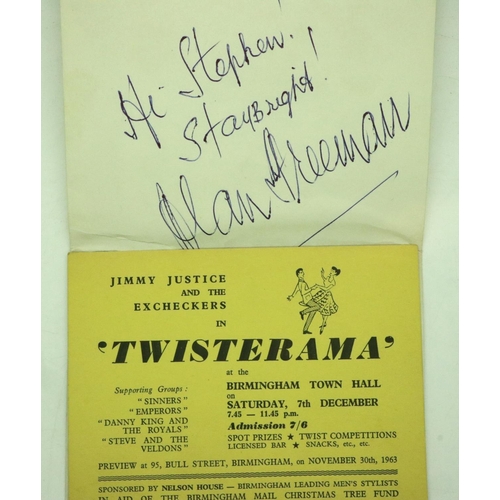 Hi Stephen!
Stay Bright!
Alan Freeman
JIMMY JUSTICE
AND THE
EXCHECKERS
IN
'TWISTERAMA'
at the
BIRMINGHAM TOWN HALL
on
SATURDAY, 7th DECEMBER
7.45 — 11.45 p.m.
Admission 7/6
SPOT PRIZES ★ TWIST COMPETITIONS
LICENSED BAR ★ SNACKS, etc., etc.
Supporting Groups :
"SINNERS"
"EMPERORS"
"DANNY KING AND
THE ROYALS"
"STEVE AND THE
VELDONS"
PREVIEW at 95, BULL STREET, BIRMINGHAM, on NOVEMBER 30th, 1963
SPONSORED BY NELSON HOUSE — BIRMINGHAM LEADING MEN'S STYLISTS
IN AID OF THE BIRMINGHAM MAIL CHRISTMAS TREE FUND